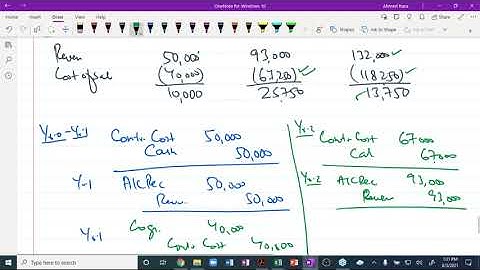 OneNote for Windows 10
Ahmed Raza
Home Insert Draw View Help
Shapes
Ink to Shape
Ink to Text
Math
Reven 50,000 93,000 132,000
Cost of sal (40,000) (67,250) (118250)
10,000 25750 13,750
Yr-0 - Yr-1 Contr. Cost 50,000
Cash 50,000
Y-1 A/C Rec 50,000
Reven 50,000
Yr-1 Cogs. 40,000
Contr Cost 40,000
Yr-2 Contr Cost 67000
Cas 67,000
Yr-2 A/C Rec 93,000
Reven 93,000
Type here to search